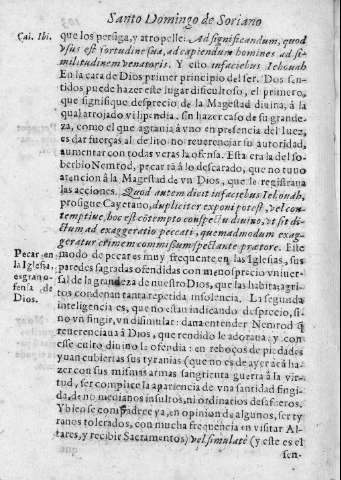 Santo Domingo de Soriano
Cai. Ibi.
que los persiga, y atropelle: Ad significandum, quod
vsus est fortudine sua, ad capiendum homines ad si-
militudinem venatoris. Y esto infaciebus Iehouah
En la cara de Dios primer principio del ser. Dos sen-
tidos puede hazer este lugar dificultoso, el primero,
que signifique desprecio de la Magestad diuina, á la
qual arrojado vilipendia, sin hazer caso de su grande-
za, como el que agrauia á vno en presencia del Iuez,
es dar fuerças al delito no reuerenciar su autoridad,
aumentar con todas veras la ofensa. Esta era la del so-
berbio Nemrod, pecar tá á lo descarado, que no tuuo
atencion á la Magestad de vn Dios, que le registraua
las acciones. Quod autem dicit infaciebus Iehouah,
prosigue Cayetano, dupliciter exponi potest, vel con-
temptiue, hoc est cõtempto conspectu diuino, vt sit di-
ctum ad exaggeratio peccati, quemadmodum exag-
geratur crimen commissum spectante prætore. Este
Pecar en
la Iglesia,
es gran o-
fensa de
Dios.
modo de pecar es muy frequente en las Iglesias, sus
paredes sagradas ofendidas con menosprecio vniuer-
sal de la grandeza de nuestro Dios, que las habita, agri-
tos condenan tanta repetida insolencia. La segunda
inteligencia es, que no estan indicando desprecio, si-
no vn fingir, vn disimular: dan a entender Nemrod q̃
reuerenciaua á Dios, que rendido le adoraua, y con
esse culto diuino le ofendia: en reboços de piedades
yuan cubiertas sus tyranias (que no es de ayer acá ha-
zer con sus mismas armas sangrienta guerra á la vir-
tud, ser complice la apariencia de vna santidad fingi-
da, de no medianos insultos, ni ordinarios desafueros.
Y bien se compadece ya, en opinion de algunos, ser ty
ranos tolerados, con mucha frequencia en visitar Al-
tares, y recibir Sacramentos) vel simulatè (y este es el
sen-